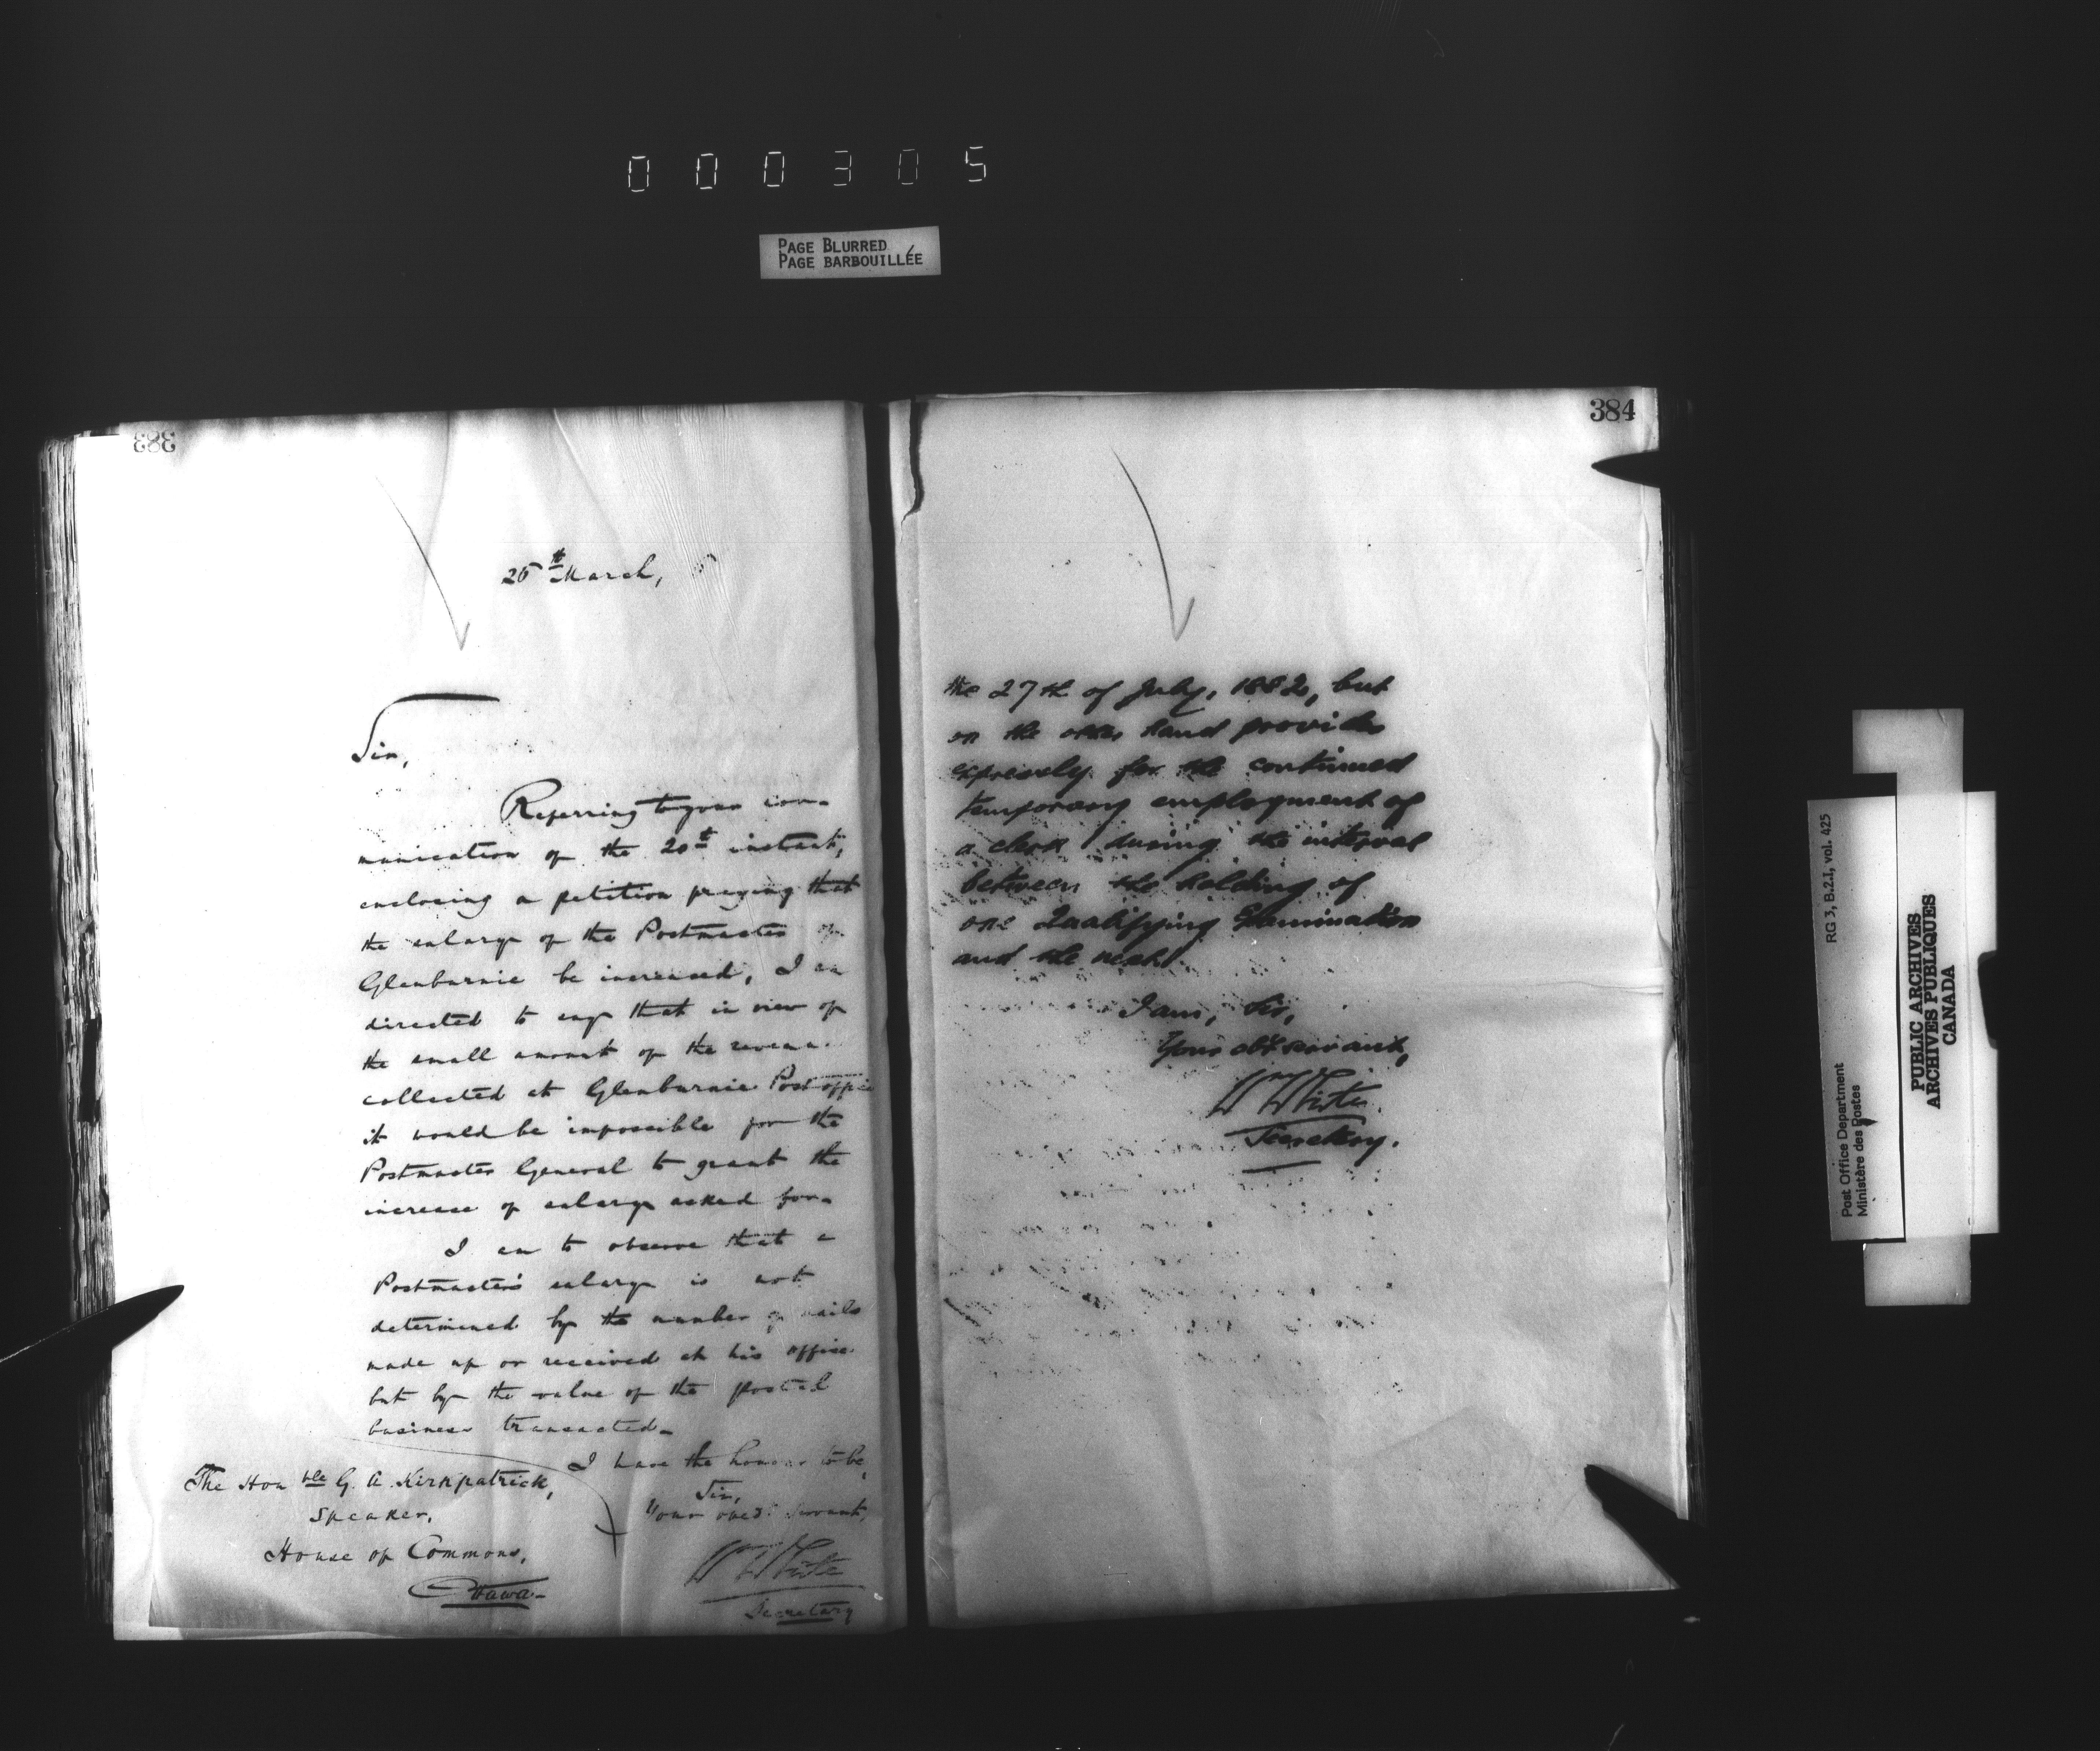 000305
PAGE BLURRED
PAGE BARBOUILLÉE
383
25th March, 5
Sir,
Referring to your com-
munication of the 20th instant,
enclosing a petition praying that
the salary of the Postmaster of
Glenburnie be increased, I am
directed to say that in view of
the small amount of the revenue
collected at Glenburnie Post office
it would be impossible for the
Postmaster General to grant the
increase of salary asked for.
I am to observe that a
Postmaster's salary is not
determined by the number of mails
made up or received at his office
but by the value of the postal
business transacted.
I have the honour to be,
Sir,
Your obedt Servant,
Wm White
Secretary
The Honble G. A. Kirkpatrick,
Speaker,
House of Commons,
Ottawa-
384
the 27th of July, 1882, but
on the other hand provides
expressly for the continued
temporary employment of
a clerk during the interval
between the holding of
one Qualifying Examination
and the next.
I am, Sir,
Your obt servant,
Wm White
Secretary.
RG 3, B.2.I, vol. 425
Post Office Department
Ministère des Postes
PUBLIC ARCHIVES
ARCHIVES PUBLIQUES
CANADA